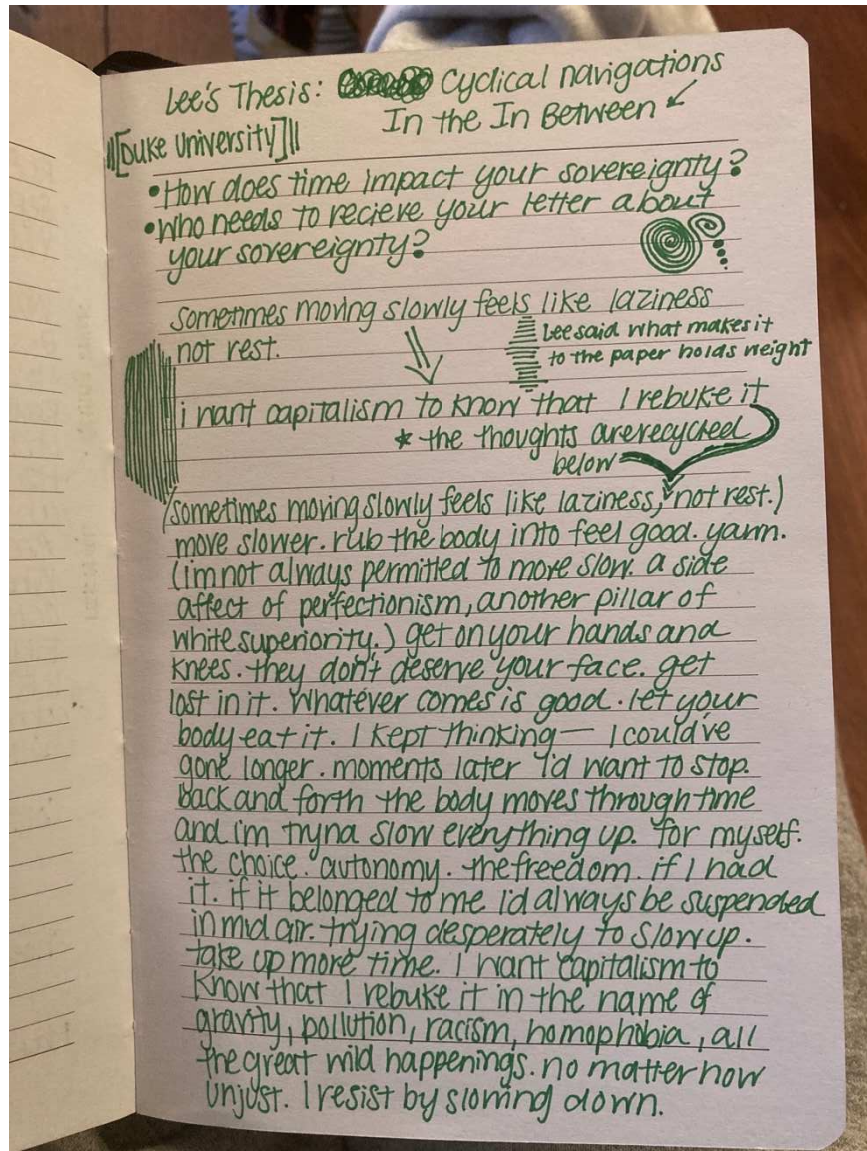 Lee's Thesis: Cyclical navigations
In the In Between
[Duke University]
• How does time impact your sovereignty?
• Who needs to recieve your letter about
your sovereignty?
sometimes moving slowly feels like laziness
not rest.
Lee said what makes it
to the paper holds weight
i want capitalism to know that I rebuke it
* the thoughts are recycled
below
(sometimes moving slowly feels like laziness, not rest.)
move slower. rub the body into feel good. yawn.
(im not always permitted to move slow. a side
affect of perfectionism, another pillar of
white superiority.) get on your hands and
knees. they don't deserve your face. get
lost in it. whatever comes is good. let your
body eat it. I kept thinking— I could've
gone longer. moments later I'd want to stop.
back and forth the body moves through time
and i'm tryna slow everything up. for myself.
the choice. autonomy. the freedom. if I had
it. if it belonged to me i'd always be suspended
in mid air. trying desperately to slow up.
take up more time. I want capitalism to
know that I rebuke it in the name of
gravity, pollution, racism, homophobia, all
the great wild happenings. no matter how
unjust. I resist by slowing down.